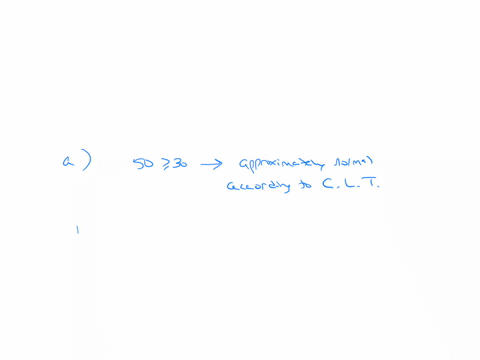 a) 50 ≥ 30 → approximately normal
according to C.L.T.